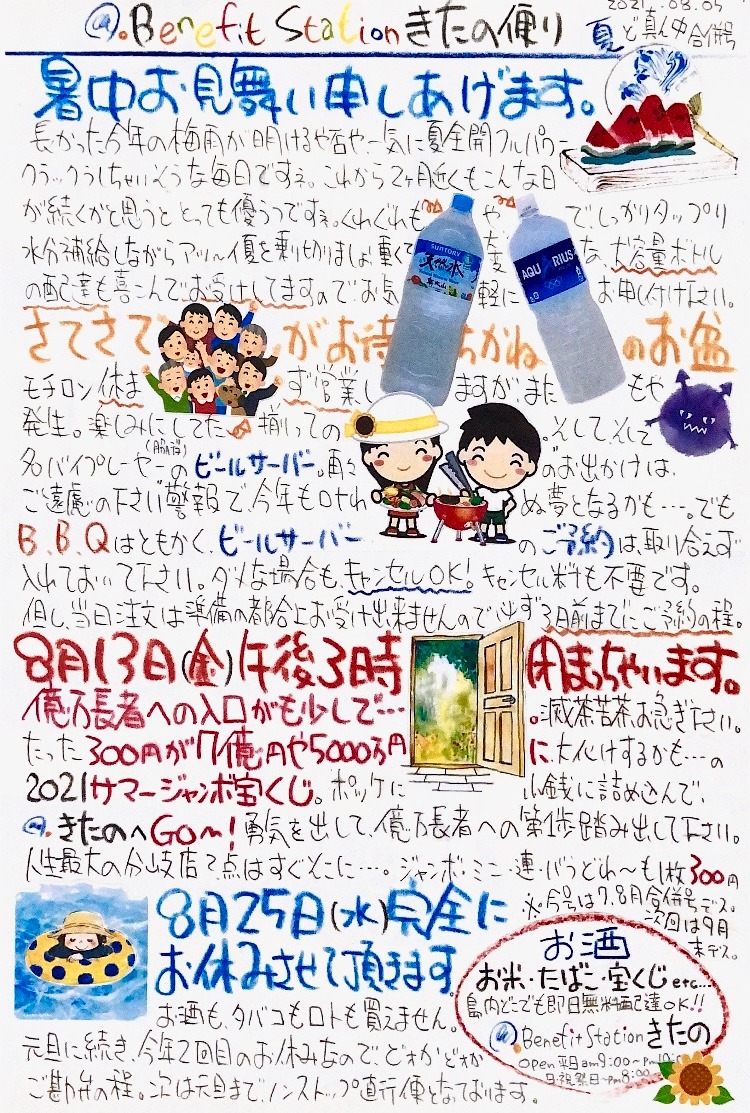 @. Benefit Station きたの便り
2021.08.05
夏ど真ん中合併号
暑中お見舞い申しあげます。
長かった今年の梅雨が明けるや否や、一気に夏全開フルパワー
クラックラしちゃいそうな毎日ですネ。これから2ヶ月近くもこんな日
が続くかと思うと とっても優うつですネ。くれぐれも や でしっかりタップリ
水分補給しながらアッツ〜イ夏を乗り切りましょ!重くて 大変 な、大容量ボトル
の配達も喜こんでお受けしてますのでお気 軽に お申し付け下さい。
SUNTORY
天然水
AQUARIUS
さてさて がお待ちかね のお盆
モチロン休まず営業しますが、また もや
発生。楽しみにしてた 揃っての 。そして、そして
名バイプレーヤーの ビールサーバー。 のお出かけは、
ご遠慮の下さい警報で、今年もロナわぬ夢となるかも…。でも
B.B.Qはともかく、ビールサーバー のご予約は、取り合えず
入れておいて下さい。ダメな場合も、キャンセルOK!キャンセル料も不要です。
但し、当日注文は準備の都合上お受け出来ませんので必ず3日前までにご予約の程。
8月13日(金)午後3時 閉まっちゃいます。
億万長者への入口がも少しで… 。滅茶苦茶お急ぎ下さい。
たった300円が7億円や5000万円 に、大化けするかも…の
2021サマージャンボ宝くじ。ポッケに 小銭に詰め込んで、
@.きたのへGo〜!勇気を出して、億万長者への第1歩踏み出して下さい。
人生最大の分岐店?点はすぐそこに…。ジャンボ・ミニ・連・バラどれ〜も1枚300円
※今号は7.8月合併号デス。
次回は9月
末デス。
8月25日(水)完全に
お休みさせて頂きます。
お酒も、タバコもロトも買えません。
元旦に続き、今年2回目のお休みなので、どぉかどぉか
ご勘弁の程。次は元旦まで、ノンストップ直行便となっております。
お酒
お米・たばこ・宝くじ etc...
島内どこでも即日無料配達OK!!
@.Benefit Station きたの
open 平日am9:00〜pm
日・祝祭日〜pm8:00